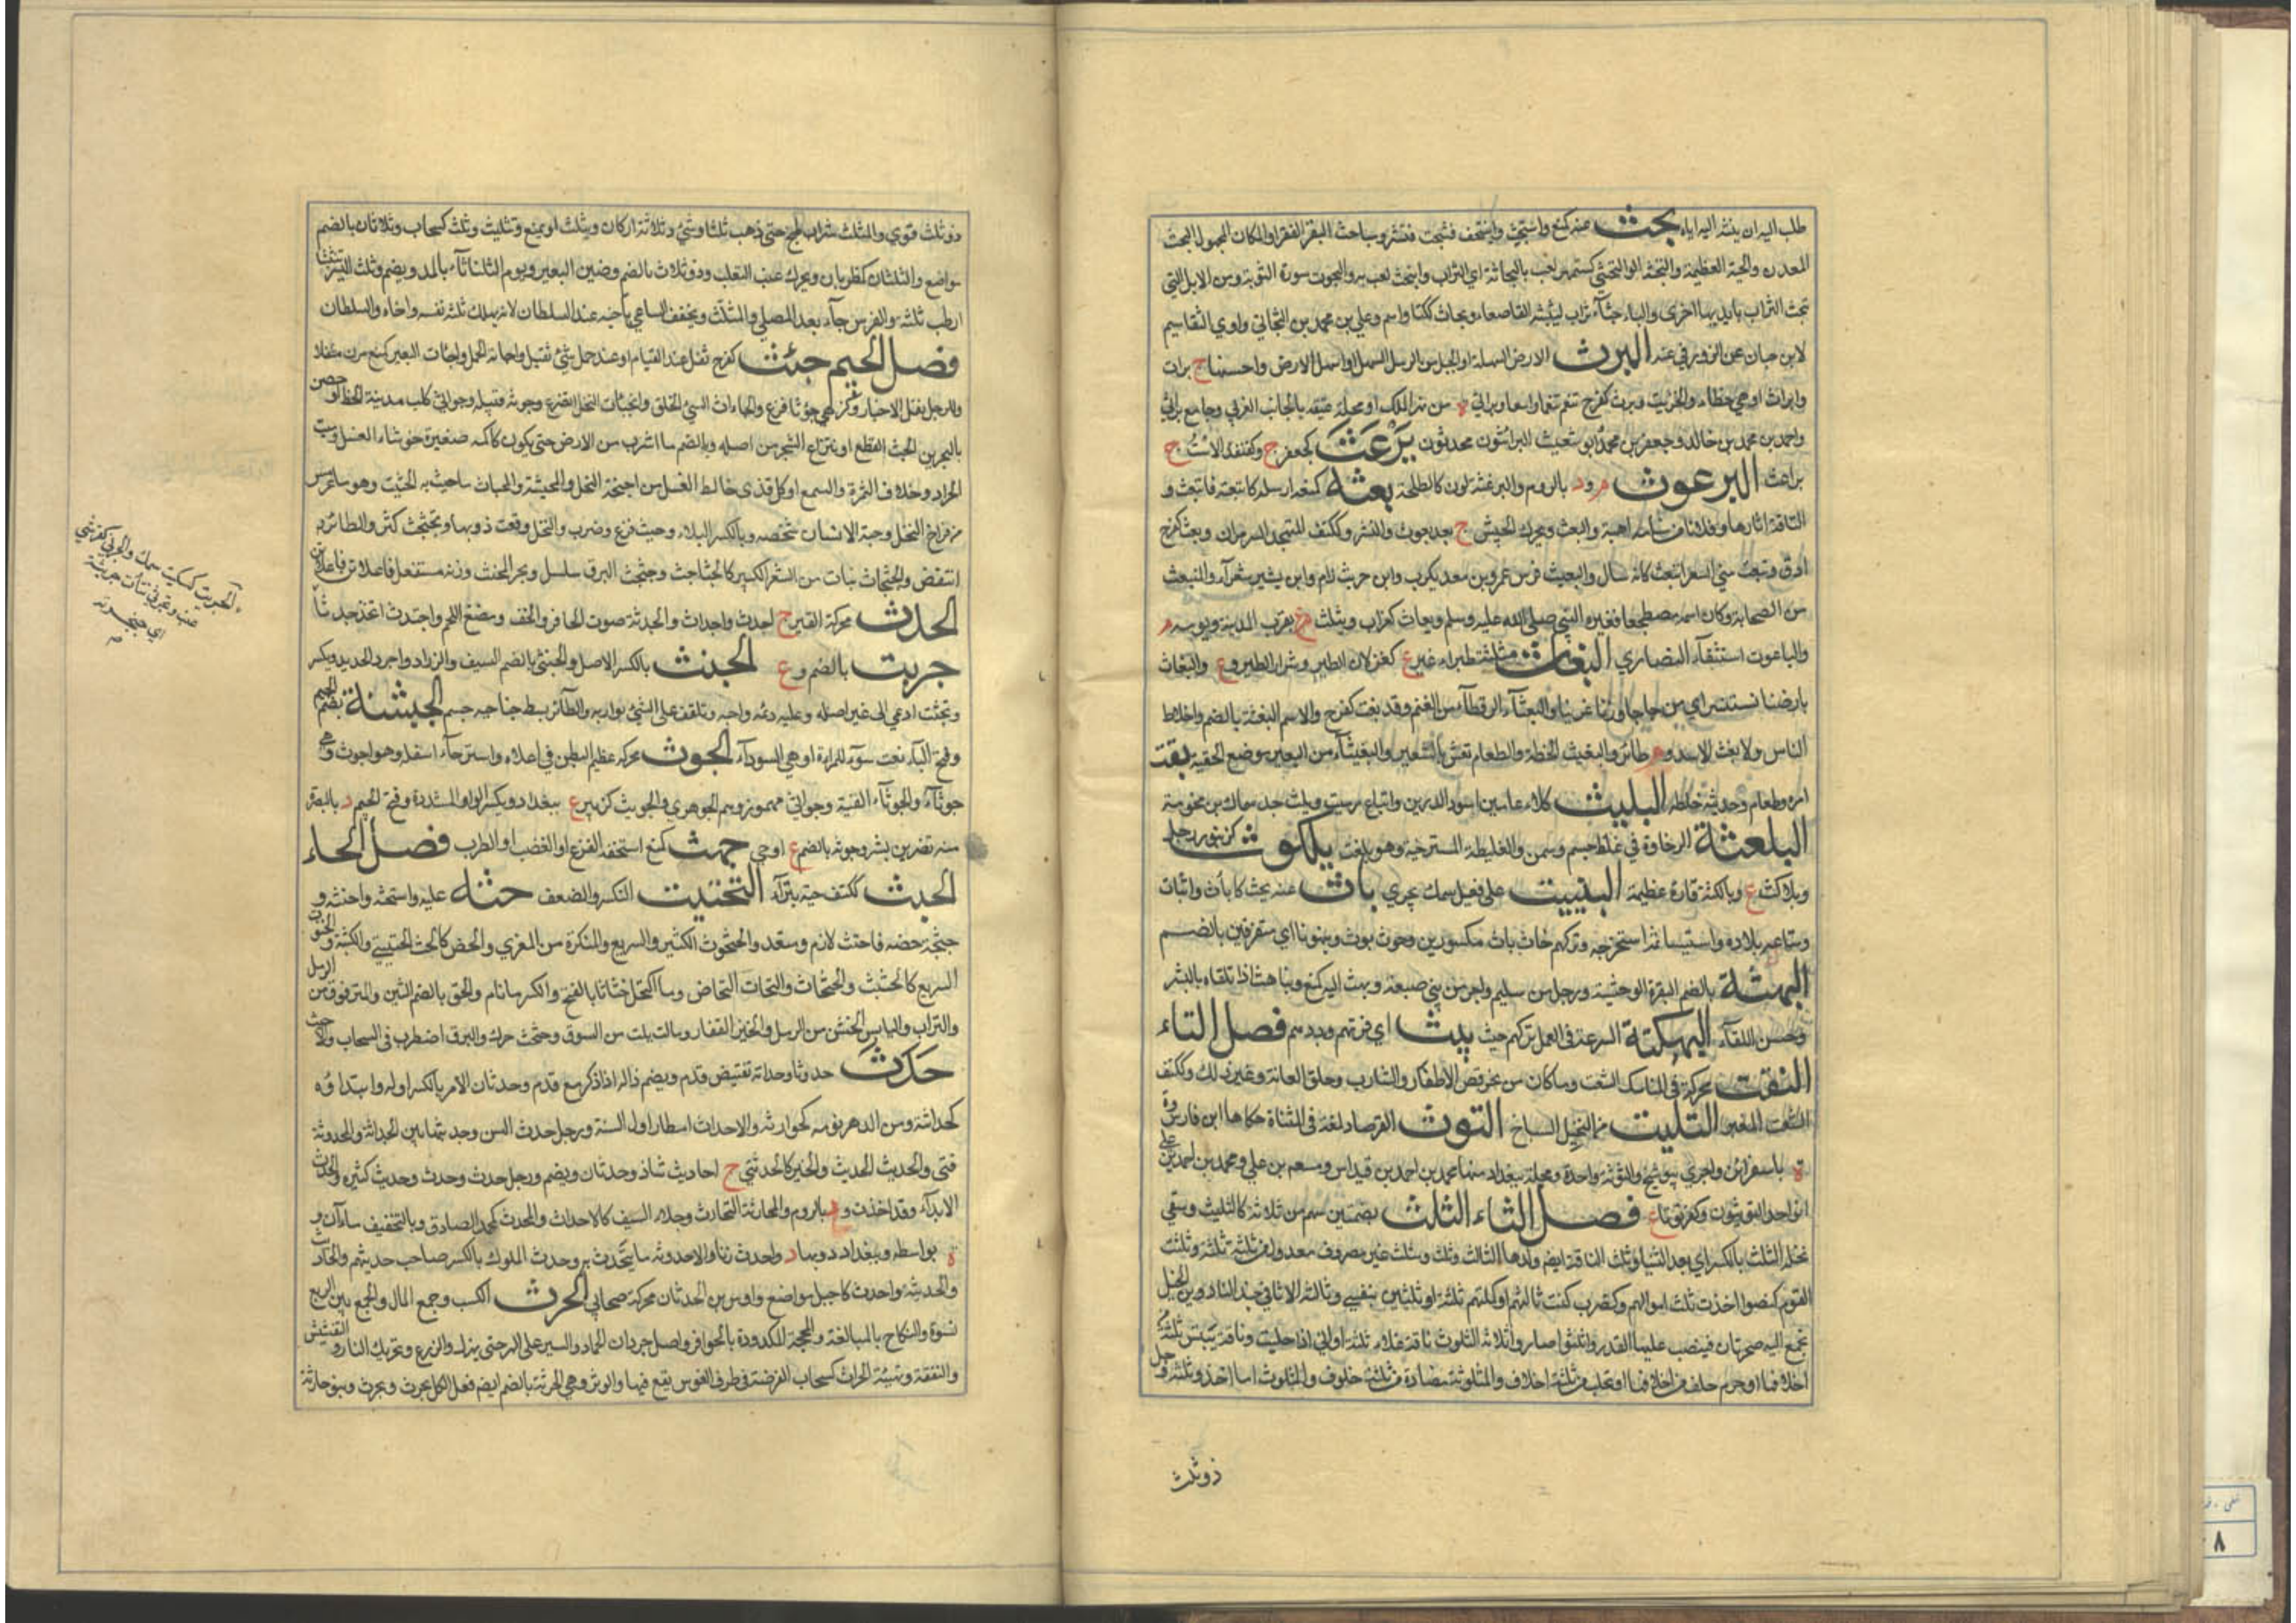 طلب اليه ان يبثه اليه اياه بحث عنه كمنع واستبحث وابتحث فتش وباحث البقر القفر او المكان المجهول والبحث
المعدن والحية العظيمة والبحثة
تبحث التراب بايديها اخرى والباحثاء تراب يشبه القاصعاء وبحاث ككتان اسم وعلي بن محمد بن البحاثي راوي التقاسيم
لابن حبان عن الزوزني عنه البرث الارض السهلة او الجبل من الرمل السهل او اسهل الارض واحسنها ج براث
وابراث وبرث كفرح تنعم تنعما واسعا وبراثى ة من نهر الملك او محلة عتيقة بالجانب الغربي وجامع براثى
واحمد بن محمد بن خالد وجعفر بن محمد وابو شعيب البراثيون محدثون برعث كجعفر ج وكقنفذ الاست ج
براعث البرغوث م ود بالروم والبرغثة لون كالطحلة بعثه كمنعه ارسله كابتعثه فانبعث و
الناقة اثارها وفلانا من منامه اهبه والبعث ويحرك الجيش ج بعوث والنشر وككتف المتهجد السهران وبعث كفرح
ارق وتبعث مني الشعر انبعث كانه سال والبعيث فرس عمرو بن معديكرب وابن حريث وابن بشير شعراء والمنبعث
من الصحابة وكان اسمه مضطجعا فغيره النبي صلى الله عليه وسلم وبعاث كغراب ويثلث ع بقرب المدينة ويومه م
والباعوث استسقاء النصارى البغاث مثلثة طائر اغبر ج كغزلان وشرار الطير وع والبغاث
بارضنا يستنسر اي من جاورنا عز بنا والبغثاء الرقطاء من الغنم وقد بغث كفرح والاسم البغثة بالضم واخلاط
الناس والابغث الاسد وع وطائر والبغيث الحنطة والطعام يغش بالشعير والبغيثاء من البعير موضع الحقيبة بقث
امره وطعامه وحديثه خلطه البليث كلاء عامين اسود كالدرين واتباع دميث وبليث جد سماك بن مخرمة
البلعثة الرخاوة في غلظ جسم وسمن والغليظة المسترخية وهو بلعث بلكوث كزنبور رجل
وبلاكث ع وبالكثة قارة عظيمة البينيث على فيعل سمك بحري باث عنه بحث كاباث وابتاث
ومتاعه بدده واستباثه استخرجه وتركهم حاث باث مكسورين وحوث بوث وينونان اي متفرقين
البهثة بالضم البقرة الوحشية ورجل من سليم واخر من بني ضبيعة وبهث اليه كمنع وتباهث اذا تلقاه بالبشر
وحسن اللقاء البهكثة السرعة في العمل تركهم حيث بيث اي فرقهم وبددهم فصل التاء
التفث محركة في المناسك الشعث وما كان من نحو قص الاظفار والشارب وحلق العانة وغير ذلك وككتف
الشعث المغبر التليث من النجيل السباخ التوث الفرصاد لغة في المثناة حكاها ابن فارس وة
ة باسفراين واخرى ببوشنج والتوثة واحدة ومحلة ببغداد منها محمد بن احمد بن قيداس ومسعود بن علي ومحمد بن احمد بن علي
التوثيون وكفر توثا ع فصل الثاء الثلث بضمتين سهم من ثلاثة كالثليث وسقي
نخله الثلث بالكسر اي بعد الثنيا وثلث الناقة ايضا ولدها الثالث وثلاث ومثلث غير مصروف معدول من ثلثة ثلثة وثلثت
القوم كنصر اخذت ثلث اموالهم وكضرب كنت ثالثهم او كملتهم ثلثة او ثلثين بنفسي وثالثة الاثافي
تجمع اليه صخرتان فينصب عليها القدر واثلثوا صاروا ثلاثة الثلوث ناقة تملأ ثلثة اواني اذا حلبت وناقة تيبس ثلثة
اخلافها او صرم خلف من اخلافها او تحلب من ثلثة اخلاف والمثلوثة مزادة من ثلثة جلود والمثلوث ما اخذ ثلثه وحبل
ذو ثلث
ذو ثلث قوى والمثلث شراب طبخ حتى ذهب ثلثاه وشيء ذو ثلاثة اركان ويثلث او يمنع وتثليث وثلث كسحاب وثلاثان بالضم
مواضع والثلثان كظربان ويحرك عنب الثعلب وذو ثلاث بالضم وضين البعير ويوم الثلاثاء بالمد ويضم وثلث البسر تثليثا
ارطب ثلثه والفرس جاء بعد المصلي والمثلث ويخفف الساعي باخيه عند السلطان لانه يهلك ثلثة نفسه واخاه والسلطان
فصل الجيم جئث كفرح ثقل عند القيام او عند حمل شيء ثقيل واجأثه الحمل وجأث البعير كمنع مر مثقلا
والرجل نقل الاخبار وكزهي جؤثا فزع والجآث السيء الخلق وانجأث النخل انصرع وجؤثة قبيلة وجواثى كلب مدينة الخط او حصن
بالبحرين الجث القطع او انتزاع الشجر من اصله وبالضم ما اشرف من الارض حتى يكون كاكمة صغيرة وخرشاء العسل وميت
الجراد وغلاف الثمرة والشمع او كل قذى خالط العسل من اجنحة النحل والمجثة والمجثاث ما جث به الجثيث وهو ما غرس
من فراخ النخل وجثة الانسان شخصه وبالكسر البلاء وجث فزع وضرب والنحل رفعت دويها وتجثجث كثر والطائر
انتفض والجثجاث نبات من الشعر الكثير كالجثاجث وجثجث البرق سلسل وبحر المجتث وزنه مستفعلن فاعلاتن فاعلاتن
الجدث محركة القبر ج اجدث واجداث والجدثة صوت الحافر والخف ومضغ اللحم واجتدث اتخذ جدثا
جربث بالضم وع الجنث بالكسر الاصل والجنثي بالضم السيف والزراد واجود الحديد ويكسر
وتجنث ادعى الى غير اصله وعليه رئمه واحبه وتلفف على الشيء يواريه والطائر بسط جناحيه وجثم الجنبثة بضم الجيم
وفتح الباء نعت سوء للمراة او هي السوداء الجوث محركة عظم البطن في اعلاه واسترخاء اسفله وهو اجوث وهي
جوثاء والجوثاء القبة وجواثى مهموز ووهم الجوهري والجويث كزبير ع ببغداد وبكسر الواو المشددة وفتح الجيم د بالبصرة
منه نصر بن بشر وجوثة بالضم ع او حي جهث كمنع استخفه الفزع او الغضب او الطرب فصل الحاء
الحبث ككتف حية بتراء التحتيث التكسر والضعف حثه عليه واستحثه واحثه و
حثحثه حضه فاحتث لازم ومتعد والحثحوث الكثير والسريع والمنكرة من المعزى والحض كالحث والحثيثى والكتيبة
السريع كالحثيث والحثحاث والتحاث التحاض وما اكتحل حثاثا بالفتح والكسر ما نام والحث بالضم حطام التبن والمترقرق من الرمل
والتراب واليابس الخشن من الرمل والخبز القفار وما لم يلت من السويق وحثحث حرك والبرق اضطرب في السحاب والاحث
حدث حدوثا وحداثة نقيض قدم ويضم داله اذا ذكر مع قدم وحدثان الامر بالكسر اوله وابتداؤه
كحداثته ومن الدهر نوبه كحوادثه والاحداث امطار اول السنة ورجل حدث السن وحديثها بين الحداثة والحدوثة
فتى والحديث الجديد والخبر كالحدثى ج احاديث شاذ وحدثان ويضم ورجل حدث وحدث وحدث وحديث كثيره والحدث
الابداء وقد احدث وع بالروم والمحادثة التحادث وجلاء السيف كالاحداث والمحدث كمحمد الصادق وبالتخفيف ماءان و
ة بواسط وببغداد وبهاء د واحدث زنا والاحدوثة ما يتحدث به وحدث الملوك بالكسر صاحب حديثهم والحادث
والحديثة واحدث كاجبل مواضع واوس بن الحدثان محركة صحابي الحرث الكسب وجمع المال والجمع بين اربع
نسوة والنكاح بالمبالغة والمحجة المكدودة بالحوافر واصل جردان الحمار والسير على الدابة حتى يهزل والزرع وتحريك النار والتفتيش
والتفقه وتهيئة الحراث كسحاب الفرضة في طرف القوس يقع فيها الوتر وهي الحرثة بالضم ايضا فعل الكل يحرث ويحرث وبنو حارثة